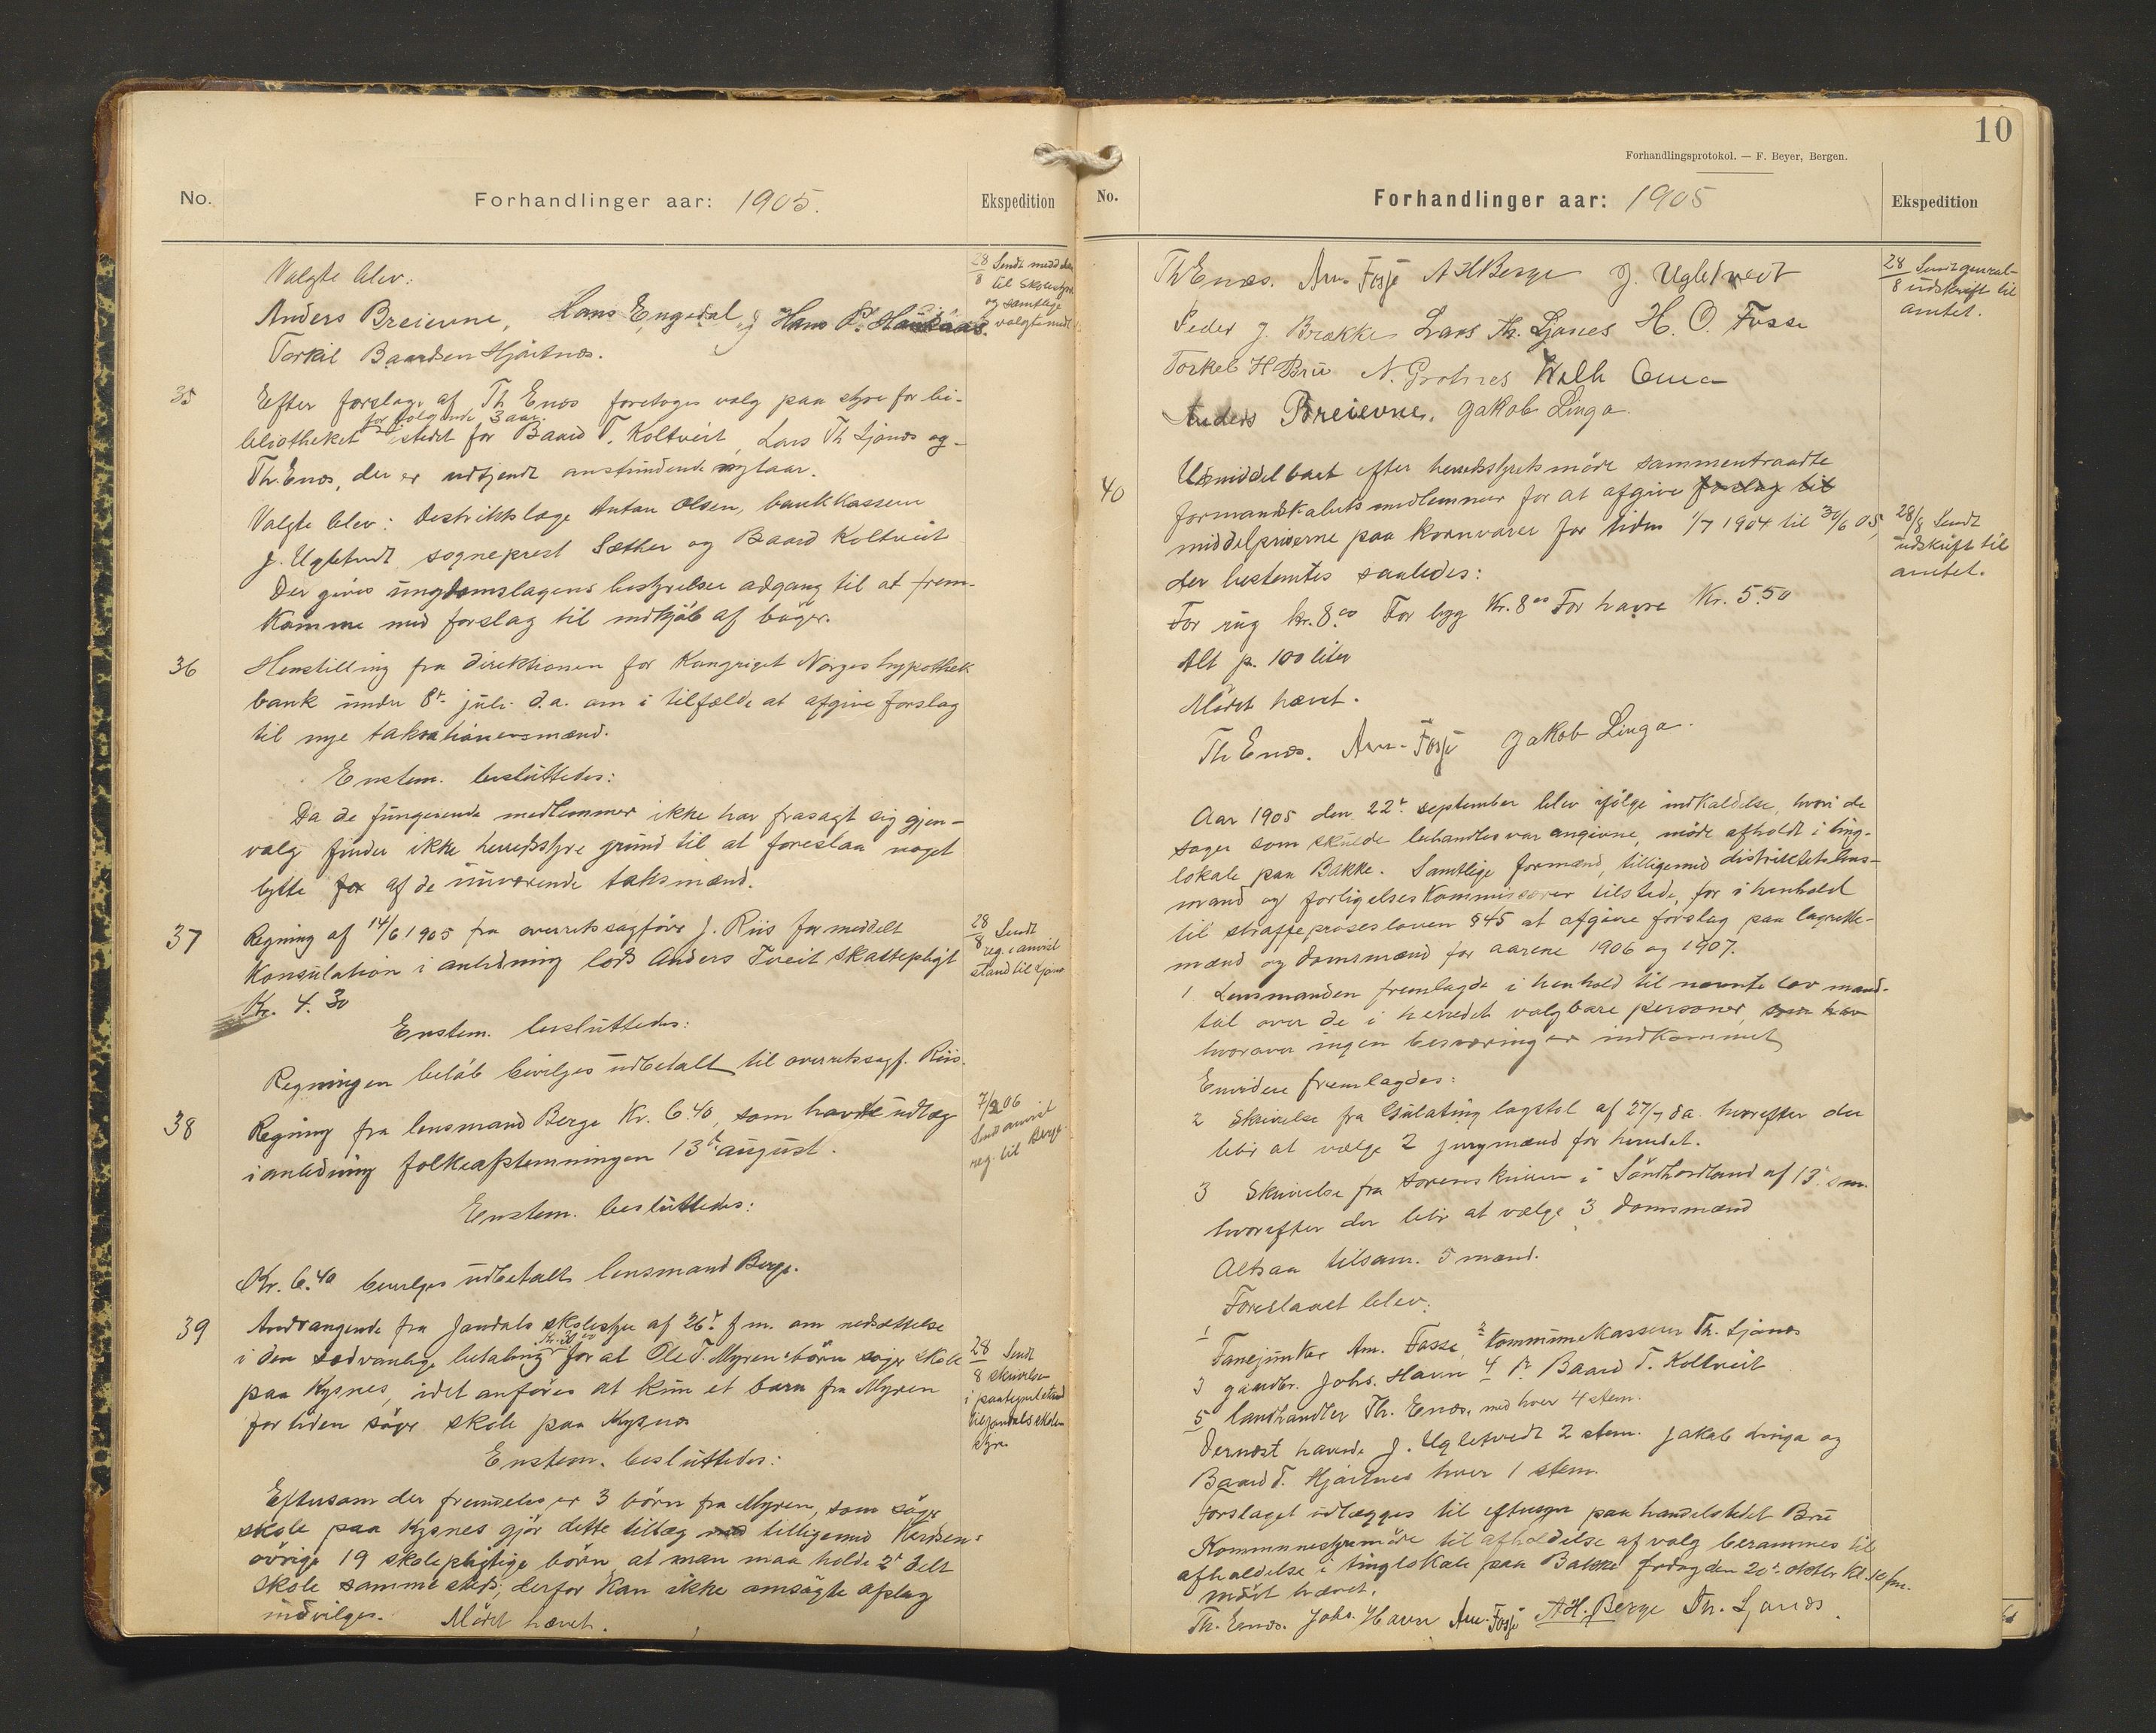 No.
Forhandlinger aar: 1905.
Ekspedition
Valgte blev:
Anders Breievne, Hans Engedal og Hans P. Haukaas.
Torkil Baardsen Hjartnes.
28/8 Sendt medd
til skolestyr
og samtlige
valgte
35
Efter forslag af Th Enæs foretoges valg paa styre for bi-
for følgende 3 aar
bliotheket istedet for Baard T. Koltveit, Lars Th Ljonæs og
Th. Enæs, der er udtjendt anstundende nytaar.
Valgte blev: Destriktslæge Anton Olsen, bankkasserer
J. Ugletvedt, sogneprest Sæther og Baard Koltveit
Der gives ungdomslagens bestyrelser adgang til at frem-
komme med forslag til indkjøb af bøger.
36
Henstilling fra direktionen for Kongriget Norges hypothek
bank under 8de juli d.a. om i tilfælde at afgive forslag
til nye taksationsmænd.
Enstem. besluttedes:
Da de fungerende medlemmer ikke har frasagt sig gjen-
valg finder ikke herredsstyre grund til at foreslaa noget
bytte for af de nuværende taksmænd.
37
Regning af 14/6 1905 fra overretssagfører J. Riis for meddelt
konsulation i anledning lods Anders Tveit skattepligt
Kr. 4.30
28/8 Sendt
reg. i anvist
stand til
Enstem. besluttedes:
Regningen beløb bevilges udbetalt til overretssagf. Riis.
38
Regning fra lensmand Berge Kr. 6.40, som havde udlæg
i anledning folkeafstemningen 13de august.
7/2 06
Send anvist
reg. til Berge
Enstem. besluttedes:
Kr. 6.40 bevilges udbetalt lensmand Berge.
39
Andragende fra Jondals skolestyre af 26de f.m. om nedsættelse
Kr. 30.00
i den sedvanlige betaling for at Ole T. Myrens børn søger skole
paa Kysnes, idet anføres at kun et barn fra Myren
for tiden søger skole paa Kysnes
28/8 Sendt
skrivelse
i paategnet stand
til Jondals skole-
styre
Enstem. besluttedes:
Eftersom der fremdeles er 3 børn fra Myren, som søger
skole paa Kysnes gjør dette tillæg med tilligemed kredsens
øvrige 19 skolepligtige børn at man maa holde 2de delt
skole samme steds, derfor kan ikke omsøgte afslag
indvilges. Mødet hævet.
10
Forhandlingsprotokol. — F. Beyer, Bergen.
No.
Forhandlinger aar: 1905
Ekspedition
Th Enæs. Am. Fosse A H Berge J. Ugletveit
Peder J. Brakke Lars Th. Ljones H. O. Fosse
Torkel H Bru N. Grotnes
Anders Breievne. Jakob Linga.
28/8 Sendt general-
udskrift til
amtet.
40
Umiddelbart efter herredsstyrets møde sammentraadte
formandskabets medlemmer for at afgive forslag til
middelpriserne paa kornvarer for tiden 1/7 1904 til 30/6 05,
der bestemtes saaledes:
For rug kr. 8.00 For byg Kr. 8.00 For havre Kr. 5.50
Alt pr. 100 liter
28/8 Sendt
udskrift til
amtet.
Mødet hævet.
Th Enæs. Am. Fosse Jakob Linga.
Aar 1905 den 22de september blev ifølge indkaldelse, hvori de
sager som skulde behandles var angivne, møde afholdt i ting-
lokale paa Bakke. Samtlige formænd, tilligemed distriktets lens-
mand og forligelseskommissærer tilstede, for i henhold
til straffeprosesloven § 45 at afgive forslag paa lagrette-
mænd og domsmænd for aarene 1906 og 1907.
1 Lensmanden fremlagde i henhold til nævnte lov mand-
tal over de i herredet valgbare personer, som har
hvorover ingen besværinger indkommet
Envidere fremlagdes:
2 Skrivelse fra Gulating lagstol af 27/7 d.a. hvorefter der
blir at vælge 2 jurymænd for herredet.
3 Skrivelse fra sorenskriveren i Søndhordland af 13de s.m.
hvorefter der blir at vælge 3 domsmænd
Altsaa tilsam. 5 mænd.
Foreslaaet blev:
1 Fanejunker Am. Fosse, 2 Kommunekasserer Th. Ljonæs
3 gaardbr. Johs. Havn 4 Baard T. Koltveit
5 landhandler Th. Enæs, med hver 4 stem.
Dernæst havde J. Ugletvedt 2 stem. Jakob Linga og
Baard T. Hjartnes hver 1 stem.
Forslaget udlægges til eftersyn paa handelstedet Bru
Kommunestyremøde til afholdelse af valg berammes til
afholdelse i tinglokale paa Bakke fredag den 20de oktbr kl. 10 fm.
mødet hævet.
Th. Enæs. Johs. Havn Am. Fosse A H. Berge Th. Ljonæs.